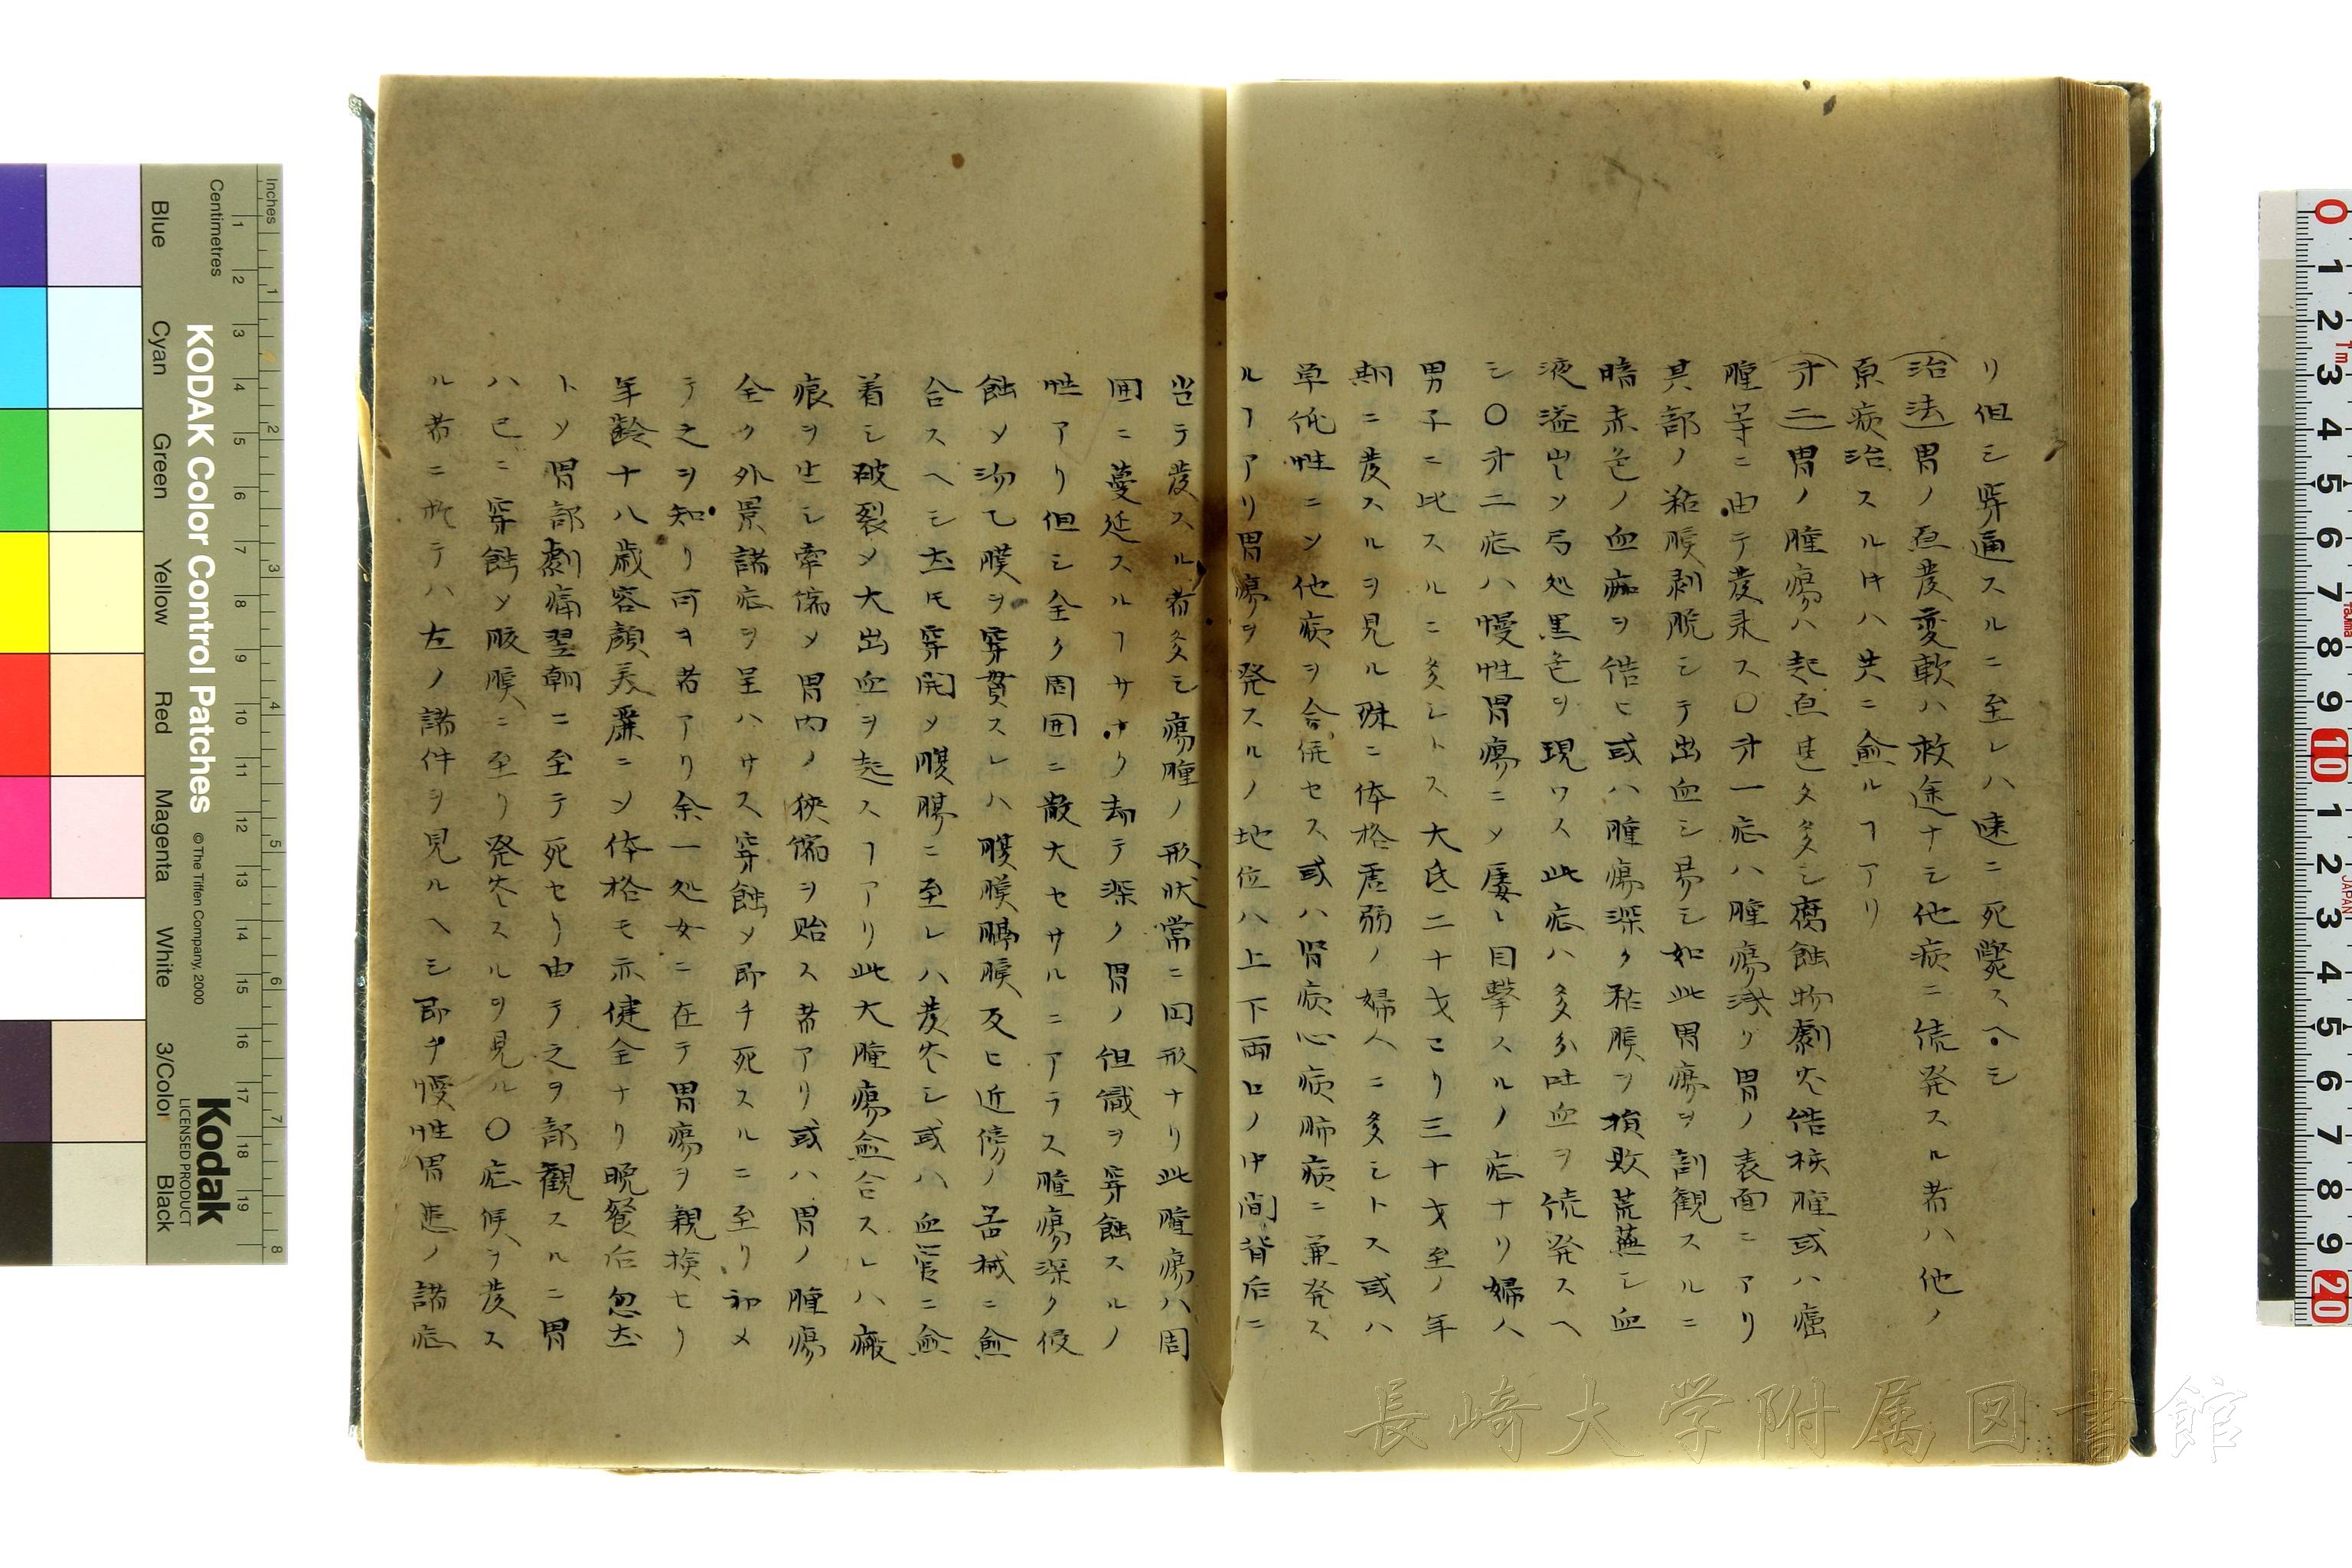 リ但シ穿通スルニ至レハ速ニ死斃スヘシ
治法 胃ノ亜発変軟ハ救途ナシ他病ニ続発スル者ハ他ノ
原病治スル𪜈ハ共ニ愈ルヿアリ
㐧二 胃ノ腫瘍ハ起亜甚タ多シ腐蝕物劇衝結核腫或ハ癌
腫等ニ由テ発来ス〇㐧一症ハ腫瘍浅ク胃ノ表面ニアリ
其部ノ粘膜剥脱シテ出血シ易シ如此胃瘍ヲ剖観スルニ
暗赤色ノ血痂ヲ結ヒ或ハ腫瘍深ク粘膜ヲ損敗荒蕪シ血
液溢出シ 処黒色ヲ現ワス此症ハ多分吐血ヲ続発スヘ
シ〇㐧二症ハ慢性胃瘍ニメ屡々目撃スルノ症ナリ婦人
男子ニ比スルニ多シトス大氐二十才ヨリ三十才至ノ年
期ニ発スルヲ見ル殊ニ体格虚弱ノ婦人ニ多シトス或ハ
単依性ニシ他病ヲ合併セス或ハ腎病心病肺病ニ兼発ス
ルヿアリ胃瘍ヲ発スルノ地位ハ上下両口ノ中間背后ニ
当テ発スル者多シ瘍腫ノ形状常ニ円形ナリ此腫瘍ハ周
囲ニ蔓延スルヿサナク却テ深ク胃ノ但織ヲ穿蝕スルノ
性アリ但シ全ク周囲ニ散大セサルニアラス腫瘍深ク侵
蝕メ 膜ヲ穿貫スレハ腹膜腸膜及ヒ近傍ノ器械ニ愈
合スヘシ 𪜈穿開メ腹腸ニ至レハ発衝シ或ハ血管ニ愈
着シ破裂メ大出血ヲ起スヿアリ此大腫瘍愈合スレハ瘢
痕ヲ生シ牽縮メ胃内ノ狭縮ヲ貽ス者アリ或ハ胃ノ腫瘍
全ク外景諸症ヲ呈ハサス穿蝕メ即チ死スルニ至リ初メ
テ之ヲ知リ可キ者アリ余一処女ニ在テ胃瘍ヲ親検セリ
年齢十八歳容顔美麗ニシ体格モ亦健全ナリ晩餐后忽
トメ胃部劇痛翌朝ニ至テ死セリ由テ之ヲ部観スルニ胃
ハ已ニ穿蝕メ腹膜ニ至リ発衝スルヲ見ル〇症候ヲ発ス
ル者ニ於テハ左ノ諸件ヲ見ルヘシ即チ慢性胃 ノ諸症
KODAK Color Control Patches
© The Tiffen Company, 2000
Kodak
LICENSED PRODUCT
Inches
Centimetres
Blue Cyan Green Yellow Red Magenta White 3/Color Black
長崎大学附属図書館